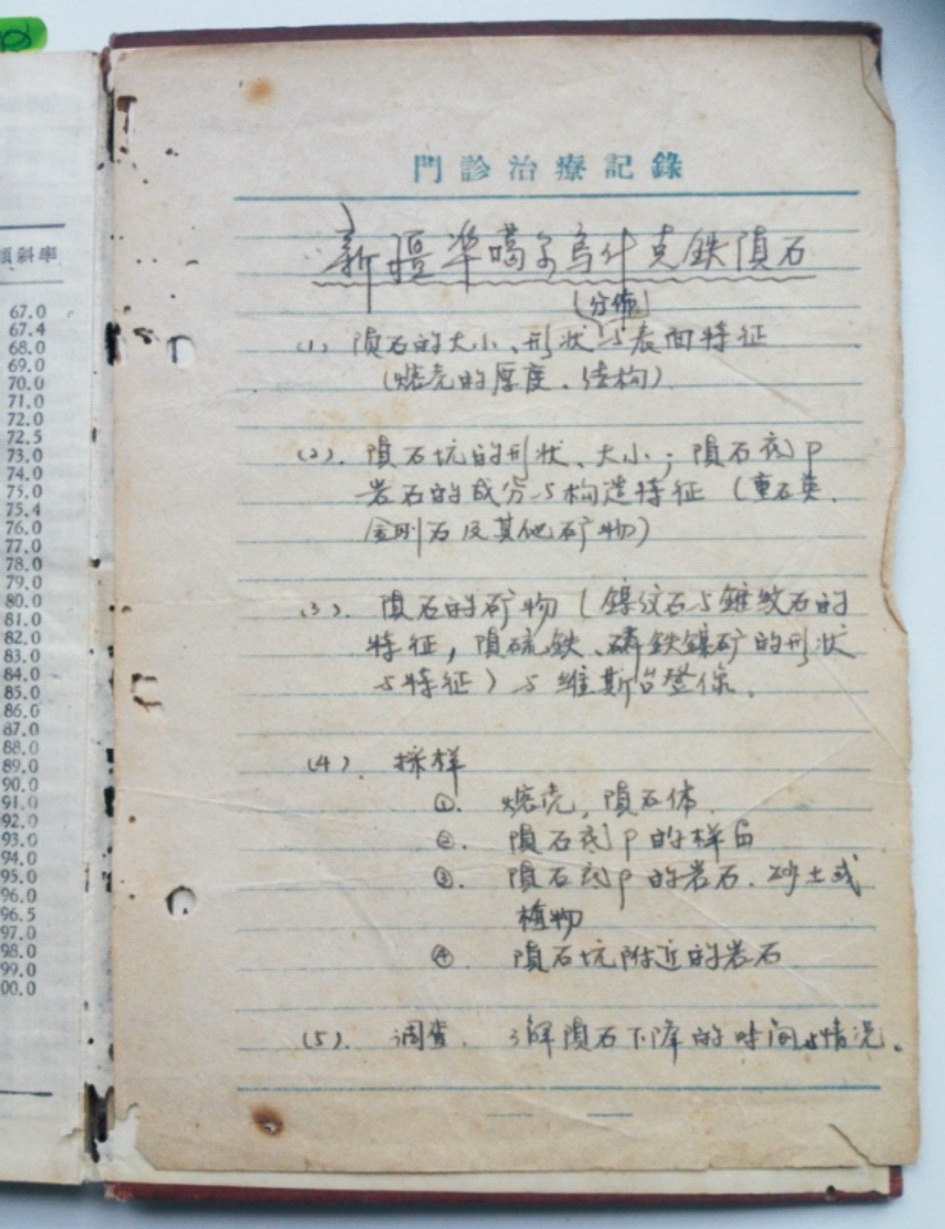 傾斜率
67.0
67.4
68.0
69.0
70.0
71.0
72.0
72.5
73.0
74.0
75.0
75.4
76.0
77.0
78.0
79.0
80.0
81.0
82.0
83.0
84.0
85.0
86.0
87.0
88.0
89.0
90.0
91.0
92.0
93.0
94.0
95.0
96.0
96.5
97.0
98.0
99.0
00.0
門診治療記錄
新疆準噶尔乌什克鉄隕石
(分佈)
(1) 隕石的大小、形状与表面特征
(熔壳的厚度、结构)
(2). 隕石坑的形状、大小；隕石底P
岩石的成分与构造特征 (重石英、
金刚石及其他矿物)
(3). 隕石的矿物 (镍纹石与锥纹石的
特征，隕硫鉄、磷鉄镍矿的形状
与特征) 与维斯台登像。
(4). 採样
①. 熔壳，隕石体.
②. 隕石底P的样品
③. 隕石底P的岩石、砂土或
植物
④ 隕石坑附近的岩石
(5). 调查. 了解隕石下降的时间与情况。